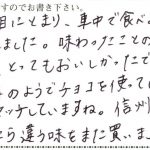 すのでお書き下さい。
目にとまり、車中で食べ
ました。味わったことの
とってもおいしかったで
のようでチョコを使ってい
マッチしていますね。信州
ら違う味をまた買いま